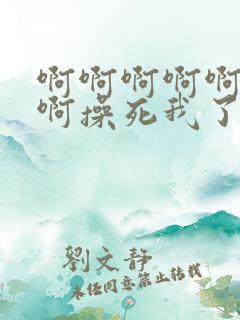 啊啊啊啊啊
啊操死我了
劉文静
未经同意禁止转载